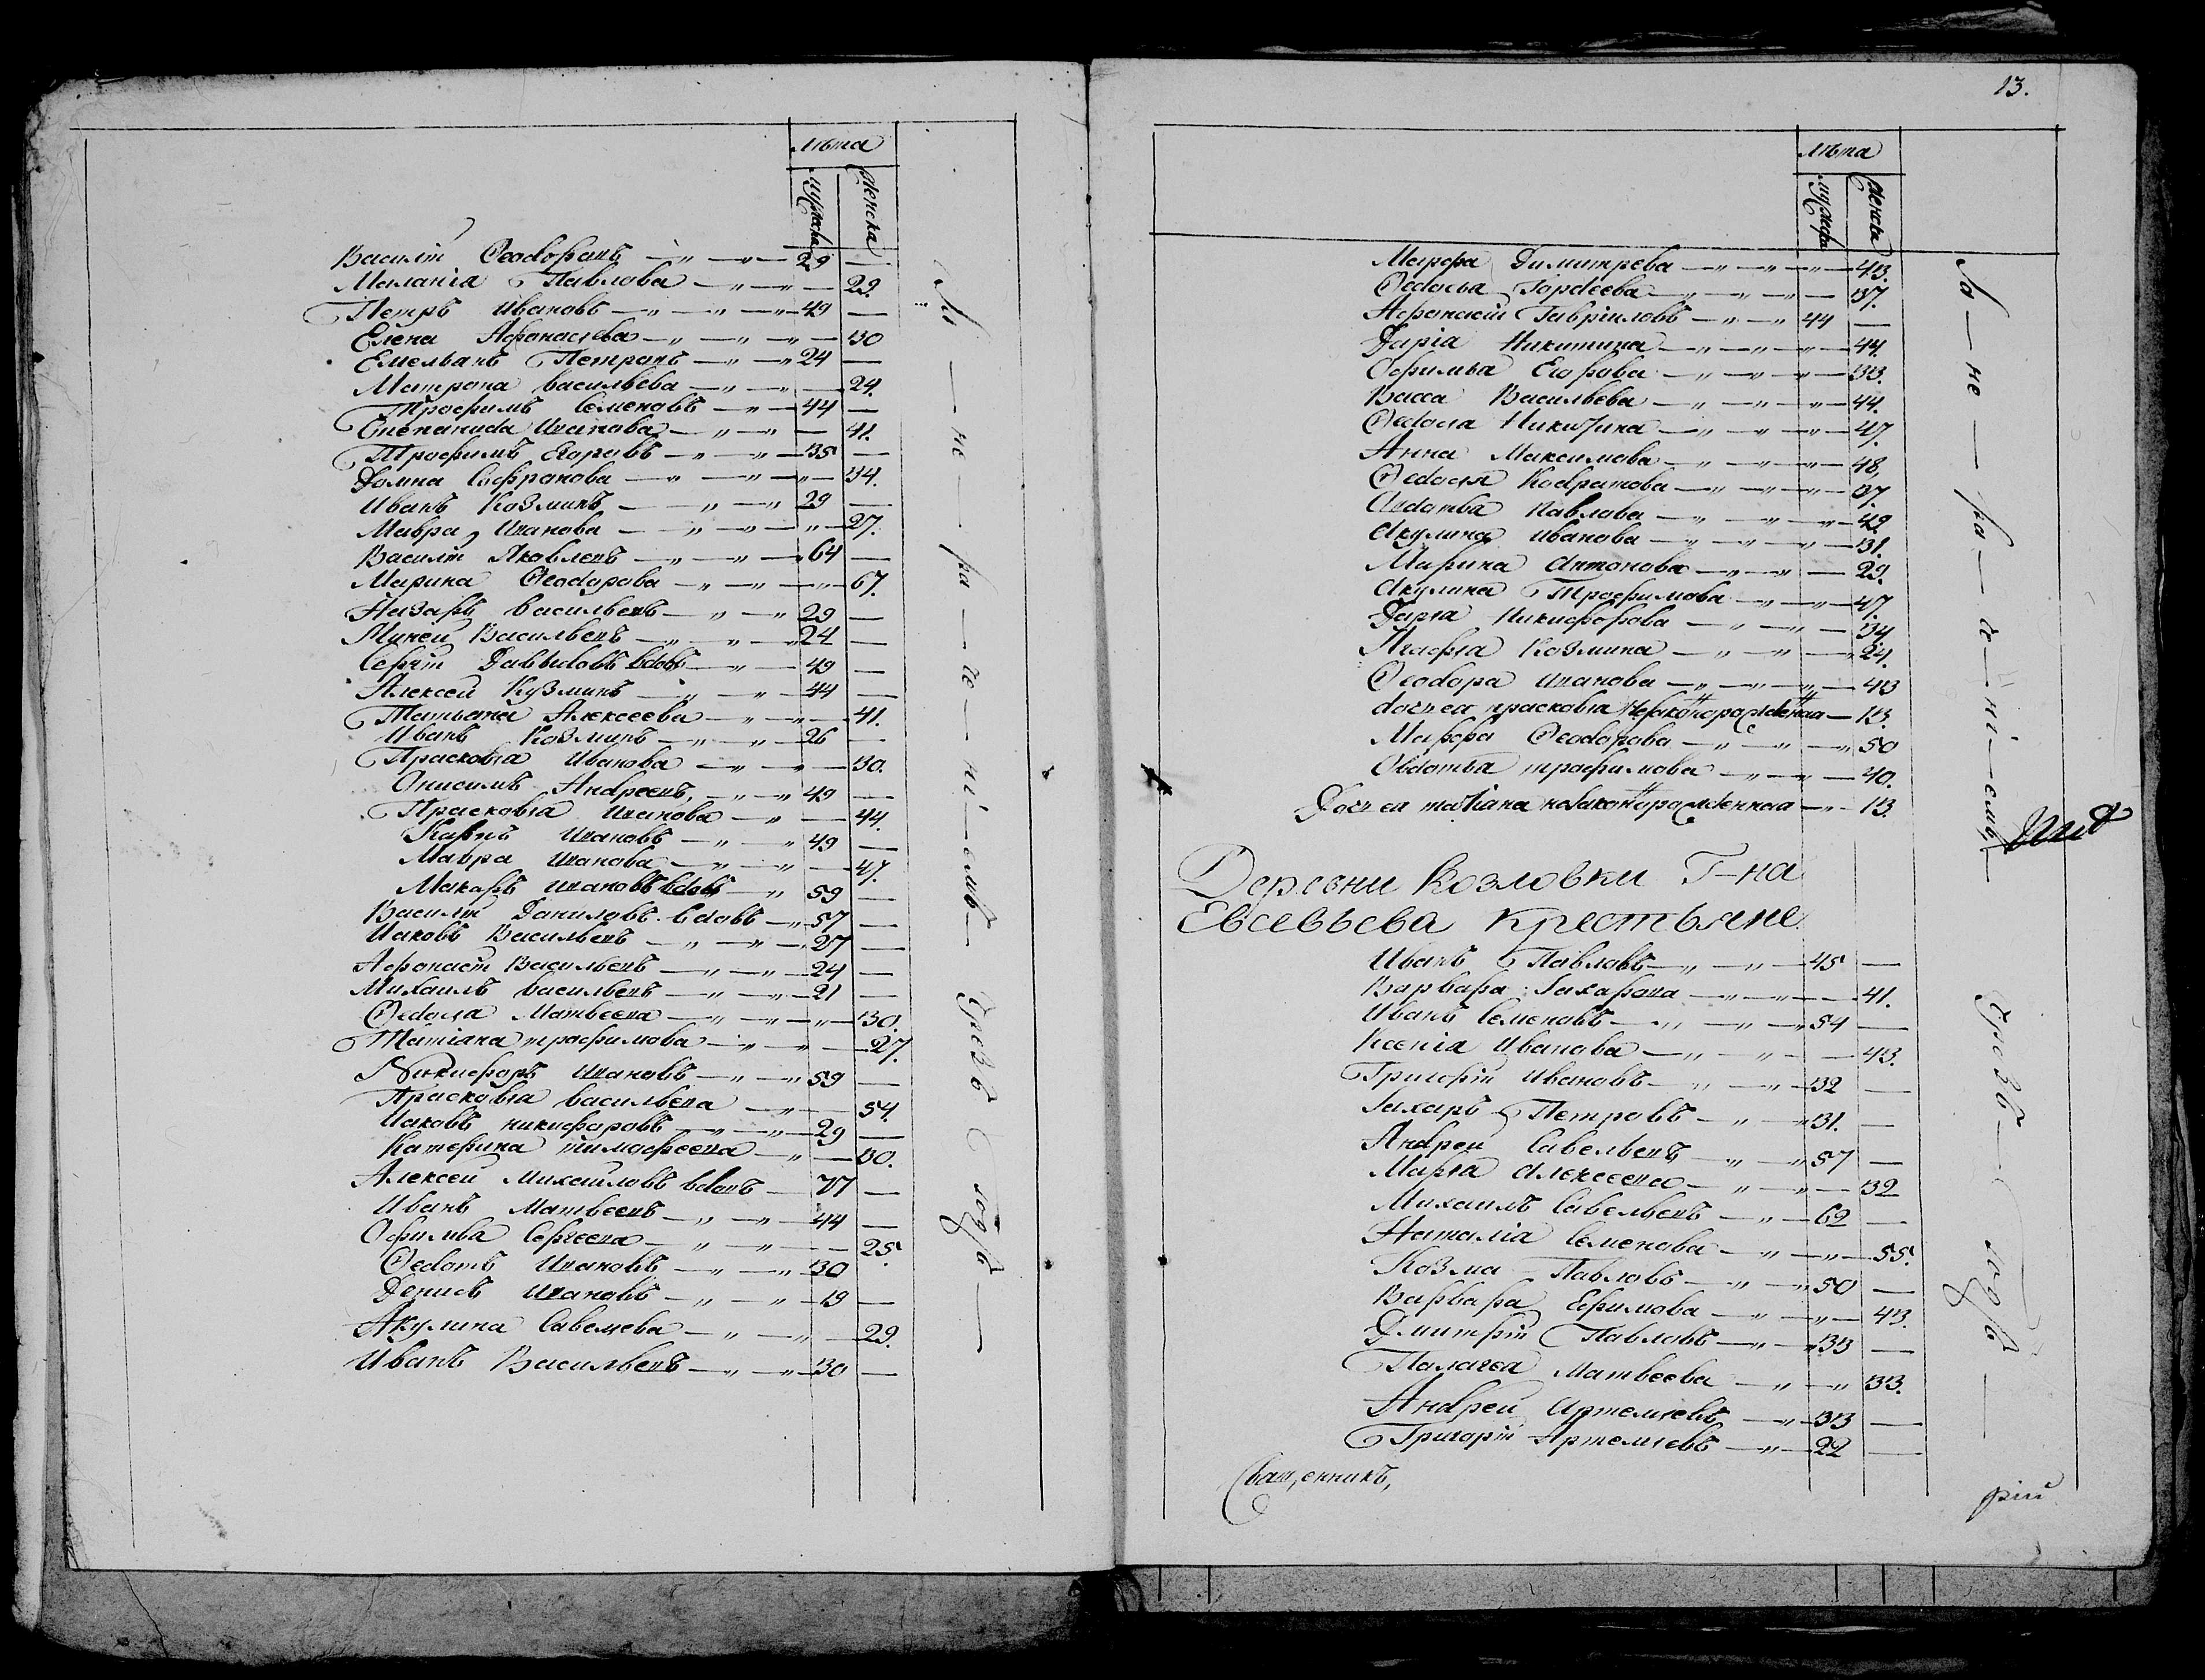 Лѣта
мужеска
женска
Василiй Ѳеодоровъ — 29 —
Маланiя Павлова — 29.
Петръ Ивановъ — 49 —
Елена Афонасьева — 30
Емельянъ Петровъ — 24 —
Матрона Васильева — 24.
Трофимъ Семеновъ — 44 —
Степанида Иванова — 41.
Трофимъ Егоровъ — 35 —
Домна Софронова — 34.
Иванъ Козминъ — 29 —
Мавра Иванова — 27.
Василiй Яковлевъ — 64 —
Марина Ѳеодорова — 67.
Назаръ Васильевъ — 29 —
Миней Васильевъ — 24 —
Сергiй Давыдовъ вдовъ — 49 —
Алексей Кузминъ — 44 —
Татьяна Алексеева — 41.
Иванъ Козминъ — 26 —
Прасковiя Иванова — 30.
Онисимъ Андреевъ — 49 —
Прасковiя Иванова — 44.
Карпъ Ивановъ — 49 —
Мавра Иванова — 47.
Макаръ Ивановъ вдовъ — 59 —
Василiй Даниловъ вдовъ — 57 —
Иаковъ Васильевъ — 27 —
Афонасiй Васильевъ — 24 —
Михаилъ Васильевъ — 21 —
Ѳедосiя Матвеева — 30.
Татiана трофимова — 27.
Никифоръ Ивановъ — 59 —
Прасковiя Васильева — 54.
Иаковъ никифоровъ — 29 —
Катерина тимофеева — 30.
Алексей Михайловъ вдовъ — 77 —
Иванъ Матвеевъ — 44 —
Офимья Сергеева — 25.
Ѳедотъ Ивановъ — 30
Денисъ Ивановъ — 19 —
Акулина Савельева — 29.
Иванъ Васильевъ — 30 —
За — не — ра — де — нi — емъ — Чрезъ — годъ —
13.
Лѣта
мужеска
женска
Марфа Димитрева — 43.
Ѳедосья Гордеева — 37.
Афонасiй Гаврiиловъ — 44 —
Дарiа Никитина — 44.
Офимья Егорова — 33.
Васса Васильева — 44.
Ѳедосiя Никитина — 47.
Анна Максимова — 48.
Ѳедосiя Кодратова — 37.
Авдотья Павлова — 49.
Акулина Иванова — 31.
Марина Антонова — 29.
Акулина Трофимова — 47.
Дарiя Никифорова — 34.
Агафiя Козмина — 24.
Ѳеодора Иванова — 43
дочь ея прасковiя незаконорожденная — 13.
Марфа Ѳеодорова — 50
Овдотья трофимова — 40.
Дочь ея татiана незаконорожденная — 13.
Деревни Козловки Г-на
Евсевьева крестьяне.
Иванъ Павловъ — 45 —
Варвара Захарова — 41.
Иванъ Семеновъ — 54 —
Ксенiя Иванова — 43.
Григорiй Ивановъ — 32 —
Захаръ Петровъ — 31. —
Андрей Савельевъ — 57 —
Марiя Алексеева — 32
Михаилъ Савельевъ — 62 —
Наталiя Семенова — 55.
Козма Павловъ — 50 —
Варвара Ефимова — 43.
Дмитрiй Павловъ — 33 —
Палагея Матвеева — 33.
Андрей Артемiевъ — 33 —
Григорiй Артемiевъ — 22 —
За — не — ра — де — нi — емъ — Чрезъ — годъ —
Священникъ,
рiй